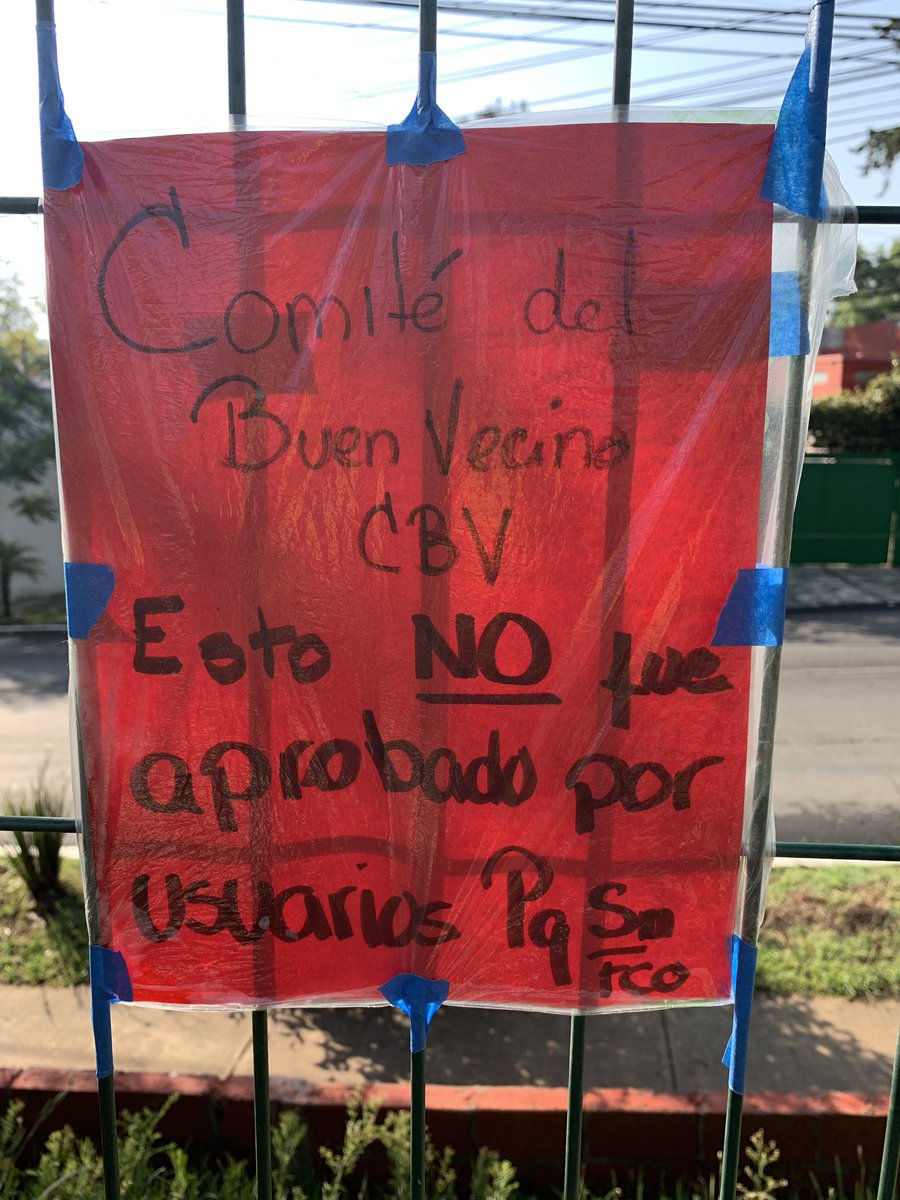 Comité del
Buen Vecino
CBV
Esto NO fue
aprobado por
usuarios Pq Sn
fco